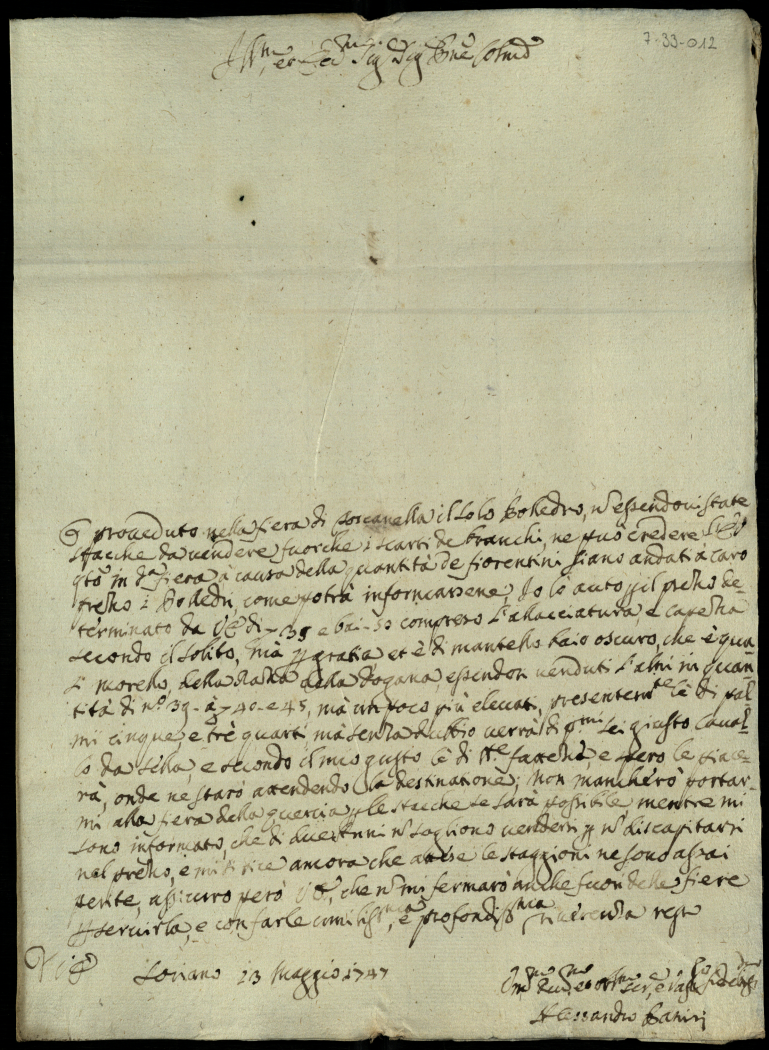 7-33-012
Ill.mo et Sig. Sig. Prne Colmo
Hò proveduto nella fiera di Toscanella il solo Polledro, n essendovi state
stacche da vendere fuorche i scarti de branchi, ne può credere V.S.
qto in da fiera à causa della quantità de fiorentini siano andati à caro
prezzo i Polledri, come potrà informarsene, Io lò auto p il prezzo de-
terminato da di 39 e bai 50 compreso l'allacciatura, e capezza
secondo il solito, mà p gratia et è di mantello baio oscuro, che è qua
si morello, della Razza della Dogana, essendosi venduti l'altri in quan
tità di no 39 à 40 e 45, mà un poco più elevati, presentemte lè di pal
mi cinque, e trè quarti mà senza dubbio verrà di pmi sei giusto caval-
lo da sella, e secondo il mio gusto lè di fattezze, e però le piace-
rà, onde ne starò attendendo la destinatione; non mancherò portar-
mi alla fiera della quercia p le stacche se sarà possibile mentre mi
sono informato, che di due anni n sogliono vendersi p n discapitarsi
nel prezzo, e mi si dice ancora che atese le staggioni ne sono assai
perite, assicuro però V.S. che n mi fermarò anche fuori delle fiere
p servirla, e con farle umiliss.ma, e profondiss.ma riverenza resto
Di V.S.
Soriano 13 Maggio 1747
Alessandro